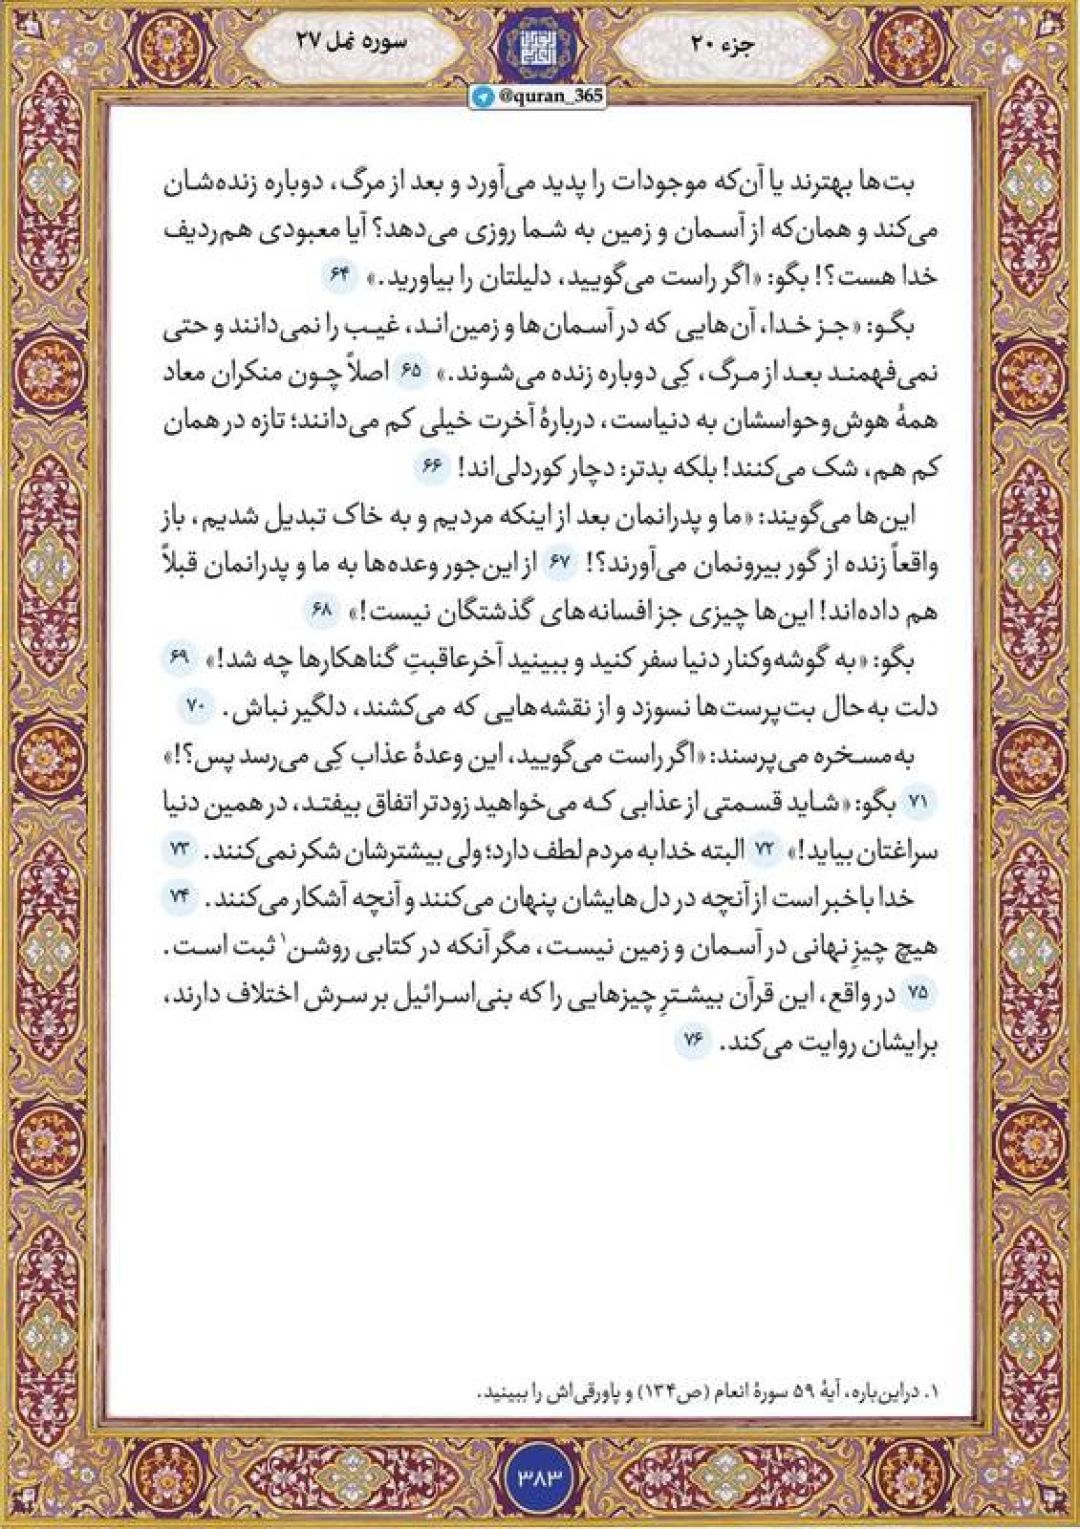 جزء ۲۰
سوره نمل ۲۷
@quran_365
بت‌ها بهترند یا آن‌که موجودات را پدید می‌آورد و بعد از مرگ، دوباره زنده‌شان
می‌کند و همان‌که از آسمان و زمین به شما روزی می‌دهد؟ آیا معبودی هم‌ردیف
خدا هست؟! بگو: «اگر راست می‌گویید، دلیلتان را بیاورید.» ۶۴
بگو: «جز خدا، آن‌هایی که در آسمان‌ها و زمین‌اند، غیب را نمی‌دانند و حتی
نمی‌فهمند بعد از مرگ، کِی دوباره زنده می‌شوند.» ۶۵ اصلاً چون منکران معاد
همهٔ هوش‌وحواسشان به دنیاست، دربارهٔ آخرت خیلی کم می‌دانند؛ تازه در همان
کم هم، شک می‌کنند! بلکه بدتر: دچار کوردلی‌اند! ۶۶
این‌ها می‌گویند: «ما و پدرانمان بعد از اینکه مردیم و به خاک تبدیل شدیم، باز
واقعاً زنده از گور بیرونمان می‌آورند؟! ۶۷ از این‌جور وعده‌ها به ما و پدرانمان قبلاً
هم داده‌اند! این‌ها چیزی جز افسانه‌های گذشتگان نیست!» ۶۸
بگو: «به گوشه‌وکنار دنیا سفر کنید و ببینید آخر عاقبتِ گناهکارها چه شد!» ۶۹
دلت به‌حال بت‌پرست‌ها نسوزد و از نقشه‌هایی که می‌کشند، دلگیر نباش. ۷۰
به‌مسخره می‌پرسند: «اگر راست می‌گویید، این وعدهٔ عذاب کِی می‌رسد پس؟!»
۷۱ بگو: «شاید قسمتی از عذابی که می‌خواهید زودتر اتفاق بیفتد، در همین دنیا
سراغتان بیاید!» ۷۲ البته خدا به مردم لطف دارد؛ ولی بیشترشان شکر نمی‌کنند. ۷۳
خدا باخبر است از آنچه در دل‌هایشان پنهان می‌کنند و آنچه آشکار می‌کنند. ۷۴
هیچ چیزِ نهانی در آسمان و زمین نیست، مگر آنکه در کتابی روشن۱ ثبت است.
۷۵ در واقع، این قرآن بیشترِ چیزهایی را که بنی‌اسرائیل بر سرش اختلاف دارند،
برایشان روایت می‌کند. ۷۶
۱. دراین‌باره، آیهٔ ۵۹ سورهٔ انعام (ص۱۳۴) و پاورقی‌اش را ببینید.
۳۸۳